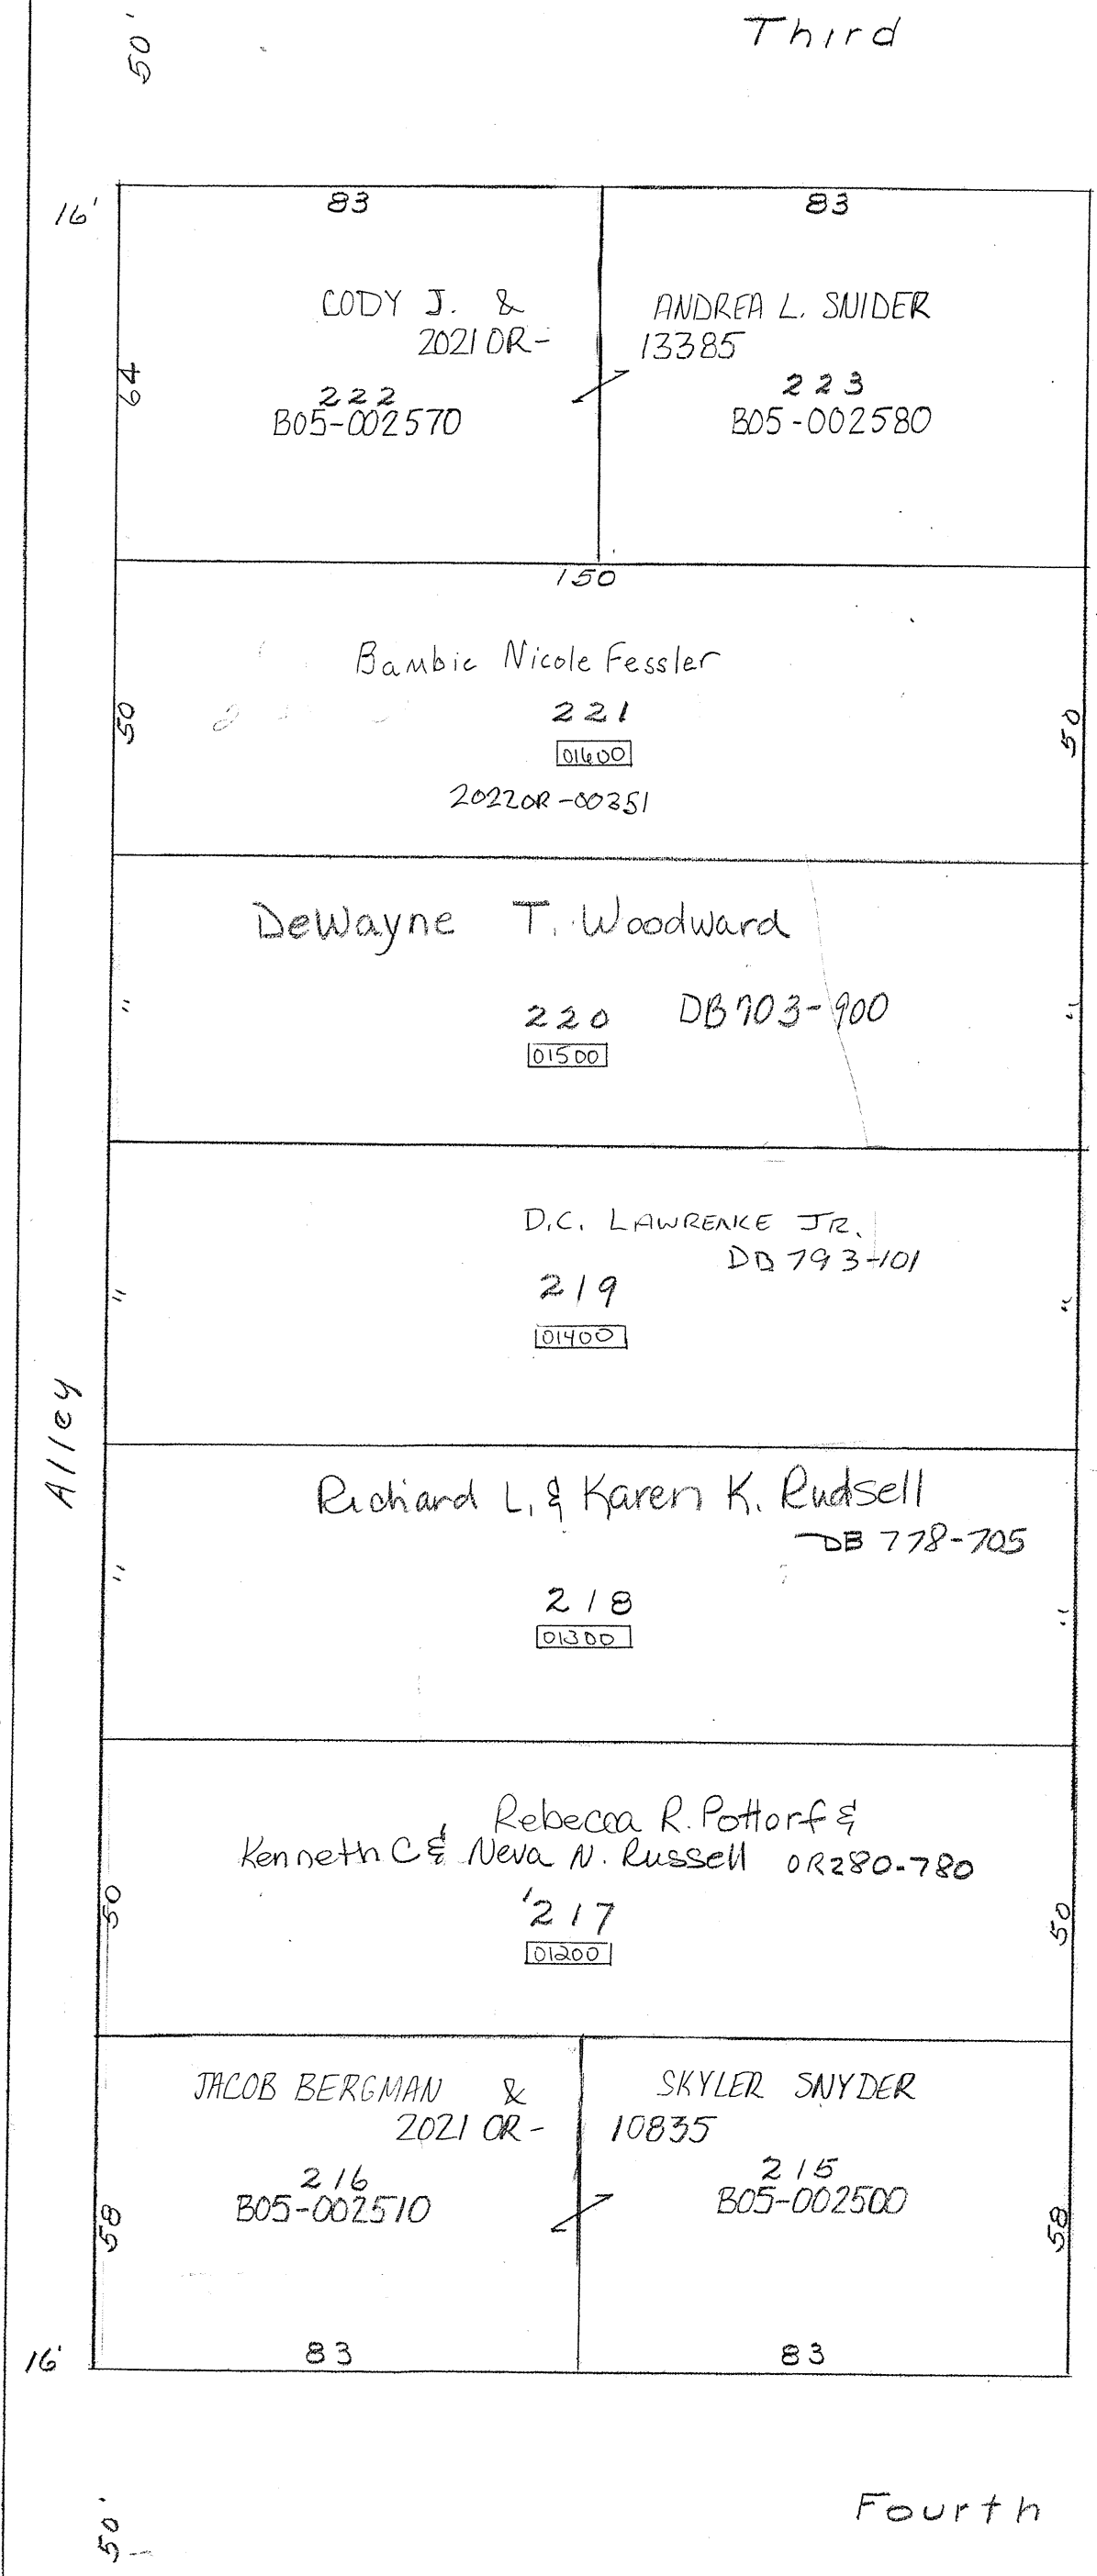 50'
Third
16'
83
83
CODY J. &
2021 OR-
ANDREA L. SNIDER
13385
64
222
B05-002570
223
B05-002580
150
Bambie Nicole Fessler
50
221
50
01600
2022OR-00351
DeWayne T. Woodward
"
220
DB703-900
"
01500
D.C. LAWRENCE JR.
DB 793-101
"
219
"
01400
Alley
Richard L. & Karen K. Rudsell
DB 778-705
"
218
"
01300
Rebecca R. Pottorf &
Kenneth C & Neva N. Russell OR280-780
50
217
50
01200
JACOB BERGMAN &
2021 OR-
SKYLER SNYDER
10835
216
B05-002510
215
B05-002500
58
58
83
83
16'
Fourth
50'